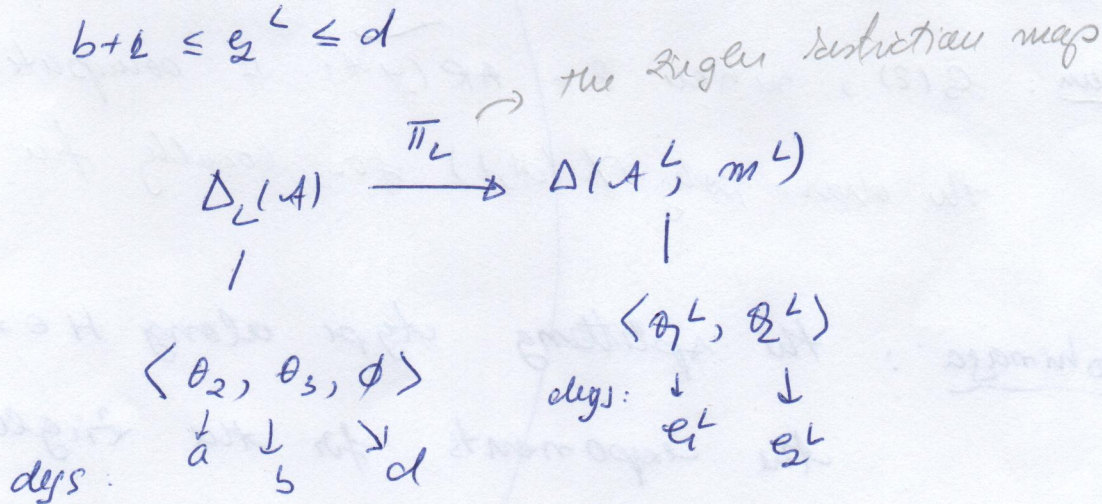 b+1 ≤ e₂ᴸ ≤ d
the Ziegler restriction map
Δ_L(A) —π_L→ Δ(Aᴸ, mᴸ)
⟨θ₂, θ₃, ϕ⟩
⟨θ₁ᴸ, θ₂ᴸ⟩
degs: a b d
degs: e₁ᴸ e₂ᴸ